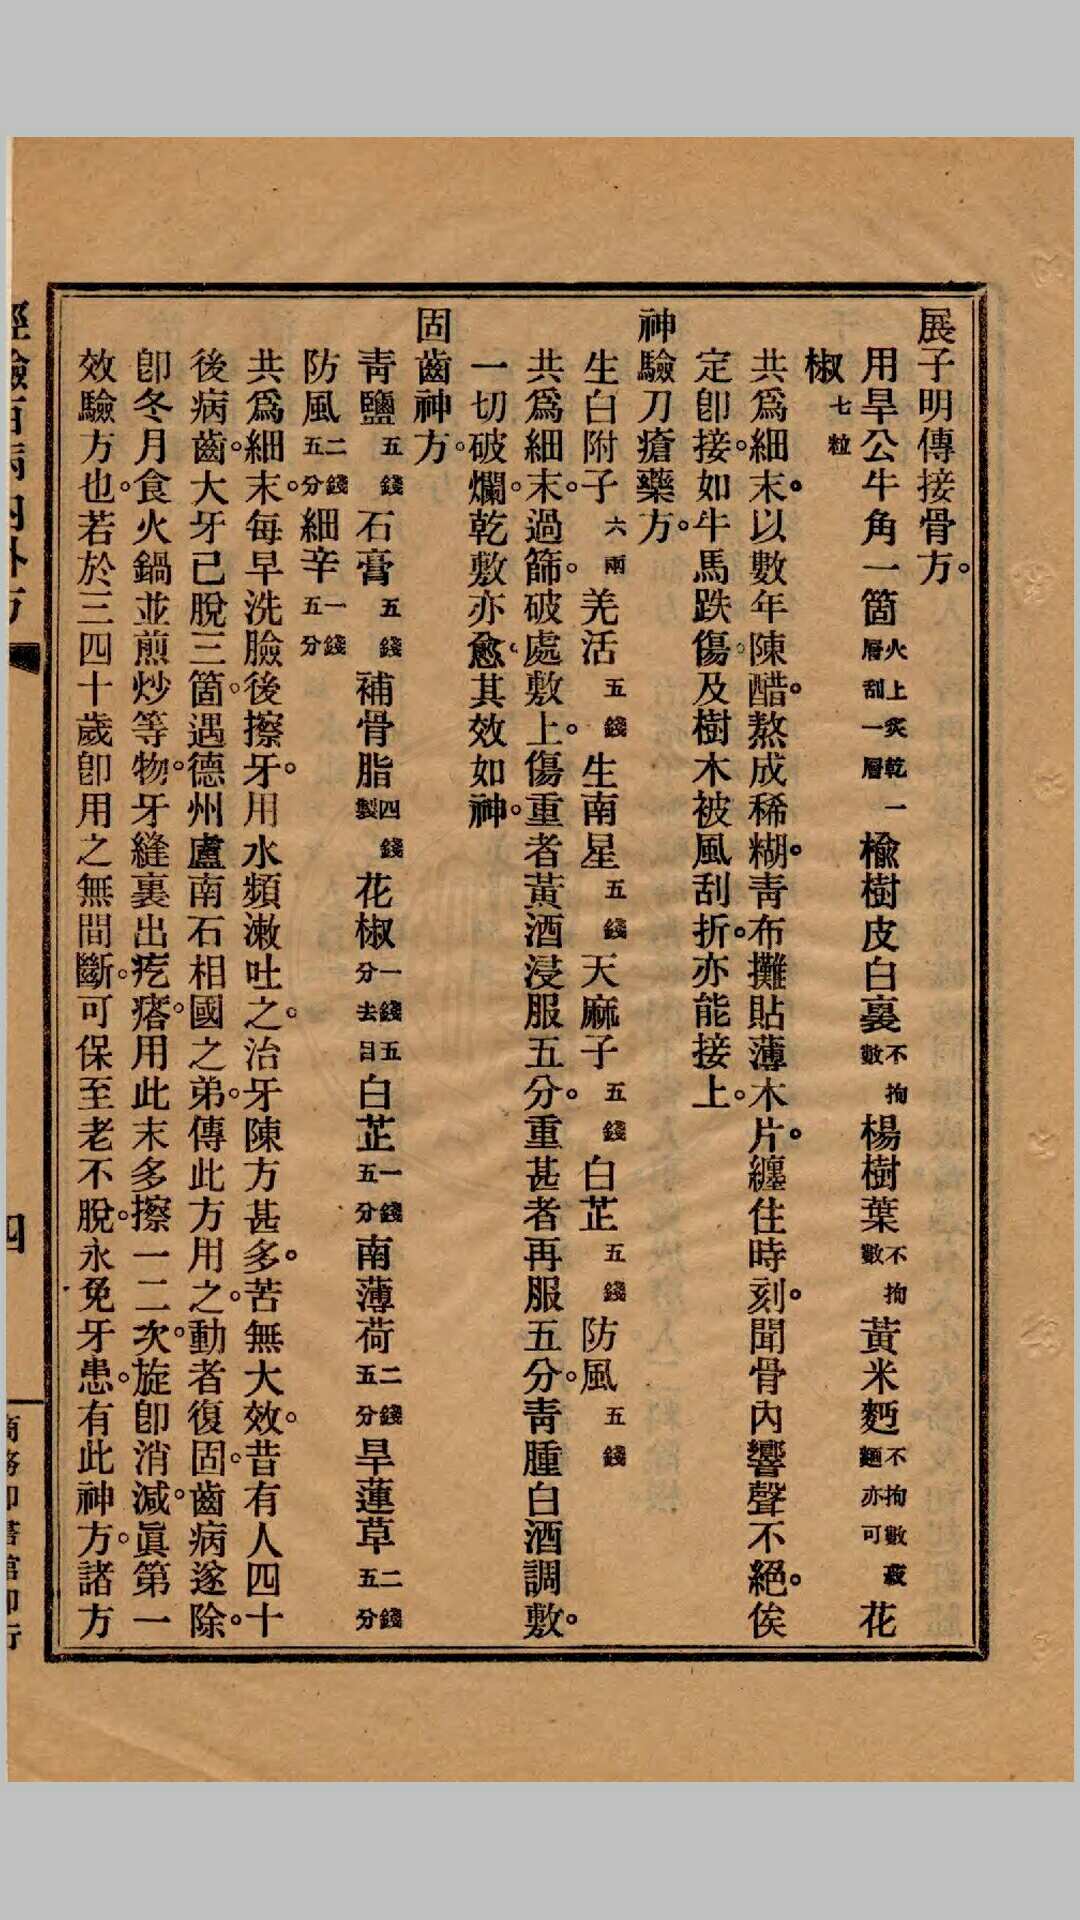 展子明傳接骨方。
用旱公牛角一箇火上炙乾一層刮一層榆樹皮白裏不拘數楊樹葉不拘數黃米麪不拘數蕎麵亦可花
椒七粒
共爲細末。以數年陳醋。熬成稀糊。青布攤貼薄木片。纏住時刻。聞骨內響聲不絕。俟
定卽接。如牛馬跌傷。及樹木被風刮折。亦能接上。
神驗刀瘡藥方。
生白附子六兩羌活五錢生南星五錢天麻子五錢白芷五錢防風五錢
共爲細末。過篩。破處敷上。傷重者黃酒浸服五分。重甚者再服五分。青腫白酒調敷。
一切破爛。乾敷亦愈。其效如神。
固齒神方。
青鹽五錢石膏五錢補骨脂四錢製花椒一錢五分去目白芷一錢五分南薄荷二錢五分旱蓮草二錢五分
防風二錢五分細辛一錢五分
共爲細末。每早洗臉後擦牙。用水頻漱吐之。治牙陳方甚多。苦無大效。昔有人四十
後病齒。大牙已脫三箇。遇德州盧南石相國之弟。傳此方用之。動者復固。齒病遂除。
卽冬月食火鍋並煎炒等物。牙縫裏出疙瘩。用此末多擦一二次。旋卽消減。眞第一
效驗方也。若於三四十歲卽用之無間斷。可保至老不脫。永免牙患。有此神方。諸方
經驗百病內外方
四
商務印書館印行